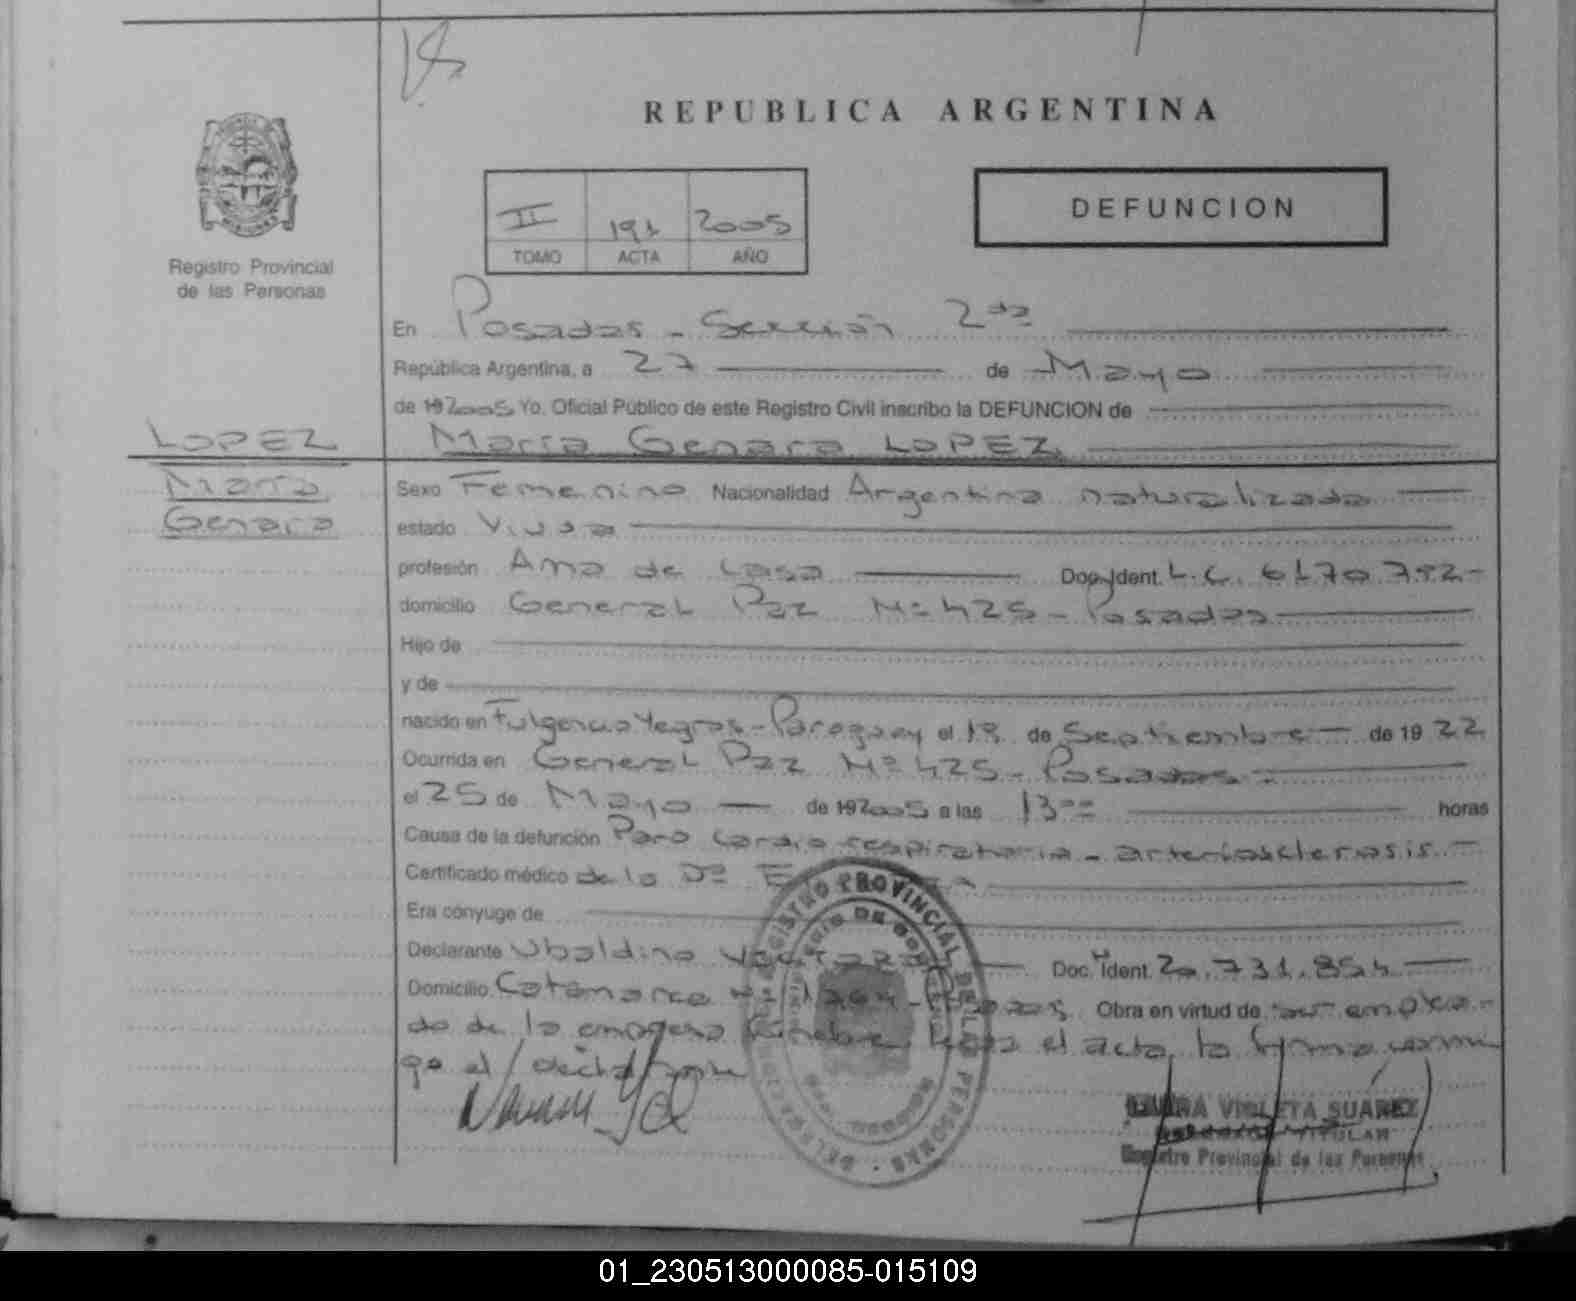 REPUBLICA ARGENTINA
II 191 2005
TOMO ACTA AÑO
DEFUNCION
Registro Provincial
de las Personas
En Posadas - Sección 2da
República Argentina, a 27 de Mayo
de 192005 Yo, Oficial Público de este Registro Civil inscribo la DEFUNCION de
LOPEZ
María
Genara
María Genara LOPEZ
Sexo Femenino Nacionalidad Argentina naturalizada
estado Viuda
profesión Ama de Casa Doc. Ident. L.C. 6170.792-
domicilio General Paz Nº 425 - Posadas
Hijo de
y de
nacido en Fulgencio Yegros - Paraguay el 19 de Septiembre de 1922
Ocurrida en General Paz Nº 425 - Posadas -
el 25 de Mayo de 192005 a las 13 horas
Causa de la defunción Paro cardio respiratorio - arteriosclerosis -
Certificado médico de la Dª
Era cónyuge de
Declarante Ubaldino Doc. Ident. 20.731.854
Domicilio Catamarca Obra en virtud de ser emplea-
do de la empresa fúnebre el acta, la firma conmi
go el declarante
REGISTRO PROVINCIAL DE LAS PERSONAS
VIOLETA SUAREZ
TITULAR
Registro Provincial de las Personas
01_230513000085-015109